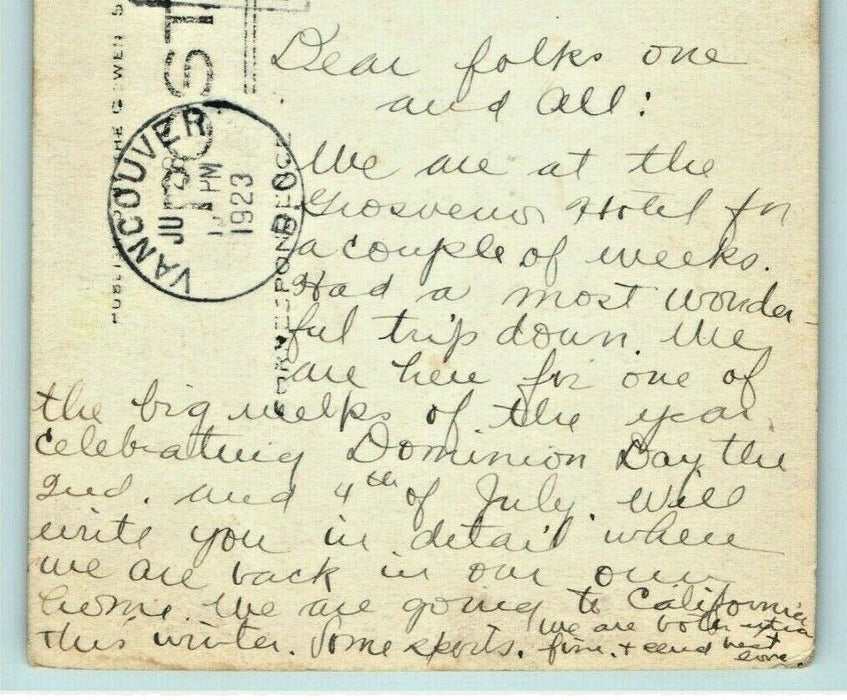 Dear folks one
and All:
We are at the
Grosvenor Hotel for
a couple of weeks.
Had a most wonder-
ful trip down. We
are here for one of
the big weeks of the year.
celebrating Dominion Day the
2nd. and 4th of July. Will
write you in detail when
we are back in our own
home. We are going to California
this winter. Some sports. We are both extra
fine. + send best
love.
VANCOUVER B.C.
PM
1923
CORRESPONDENCE